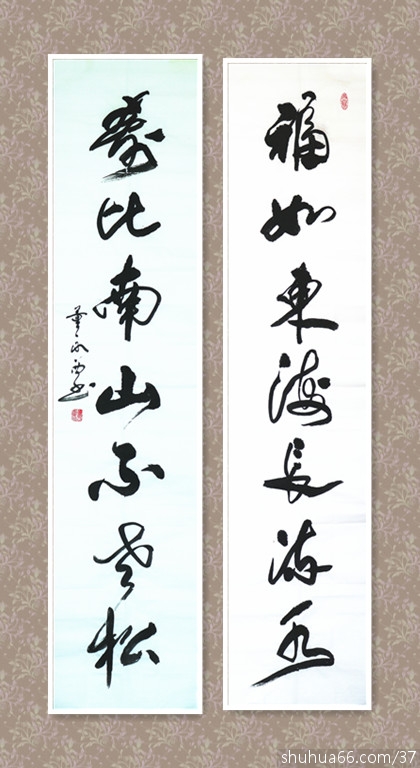 福如東海長流水
壽比南山不老松
shuhua66.com/37